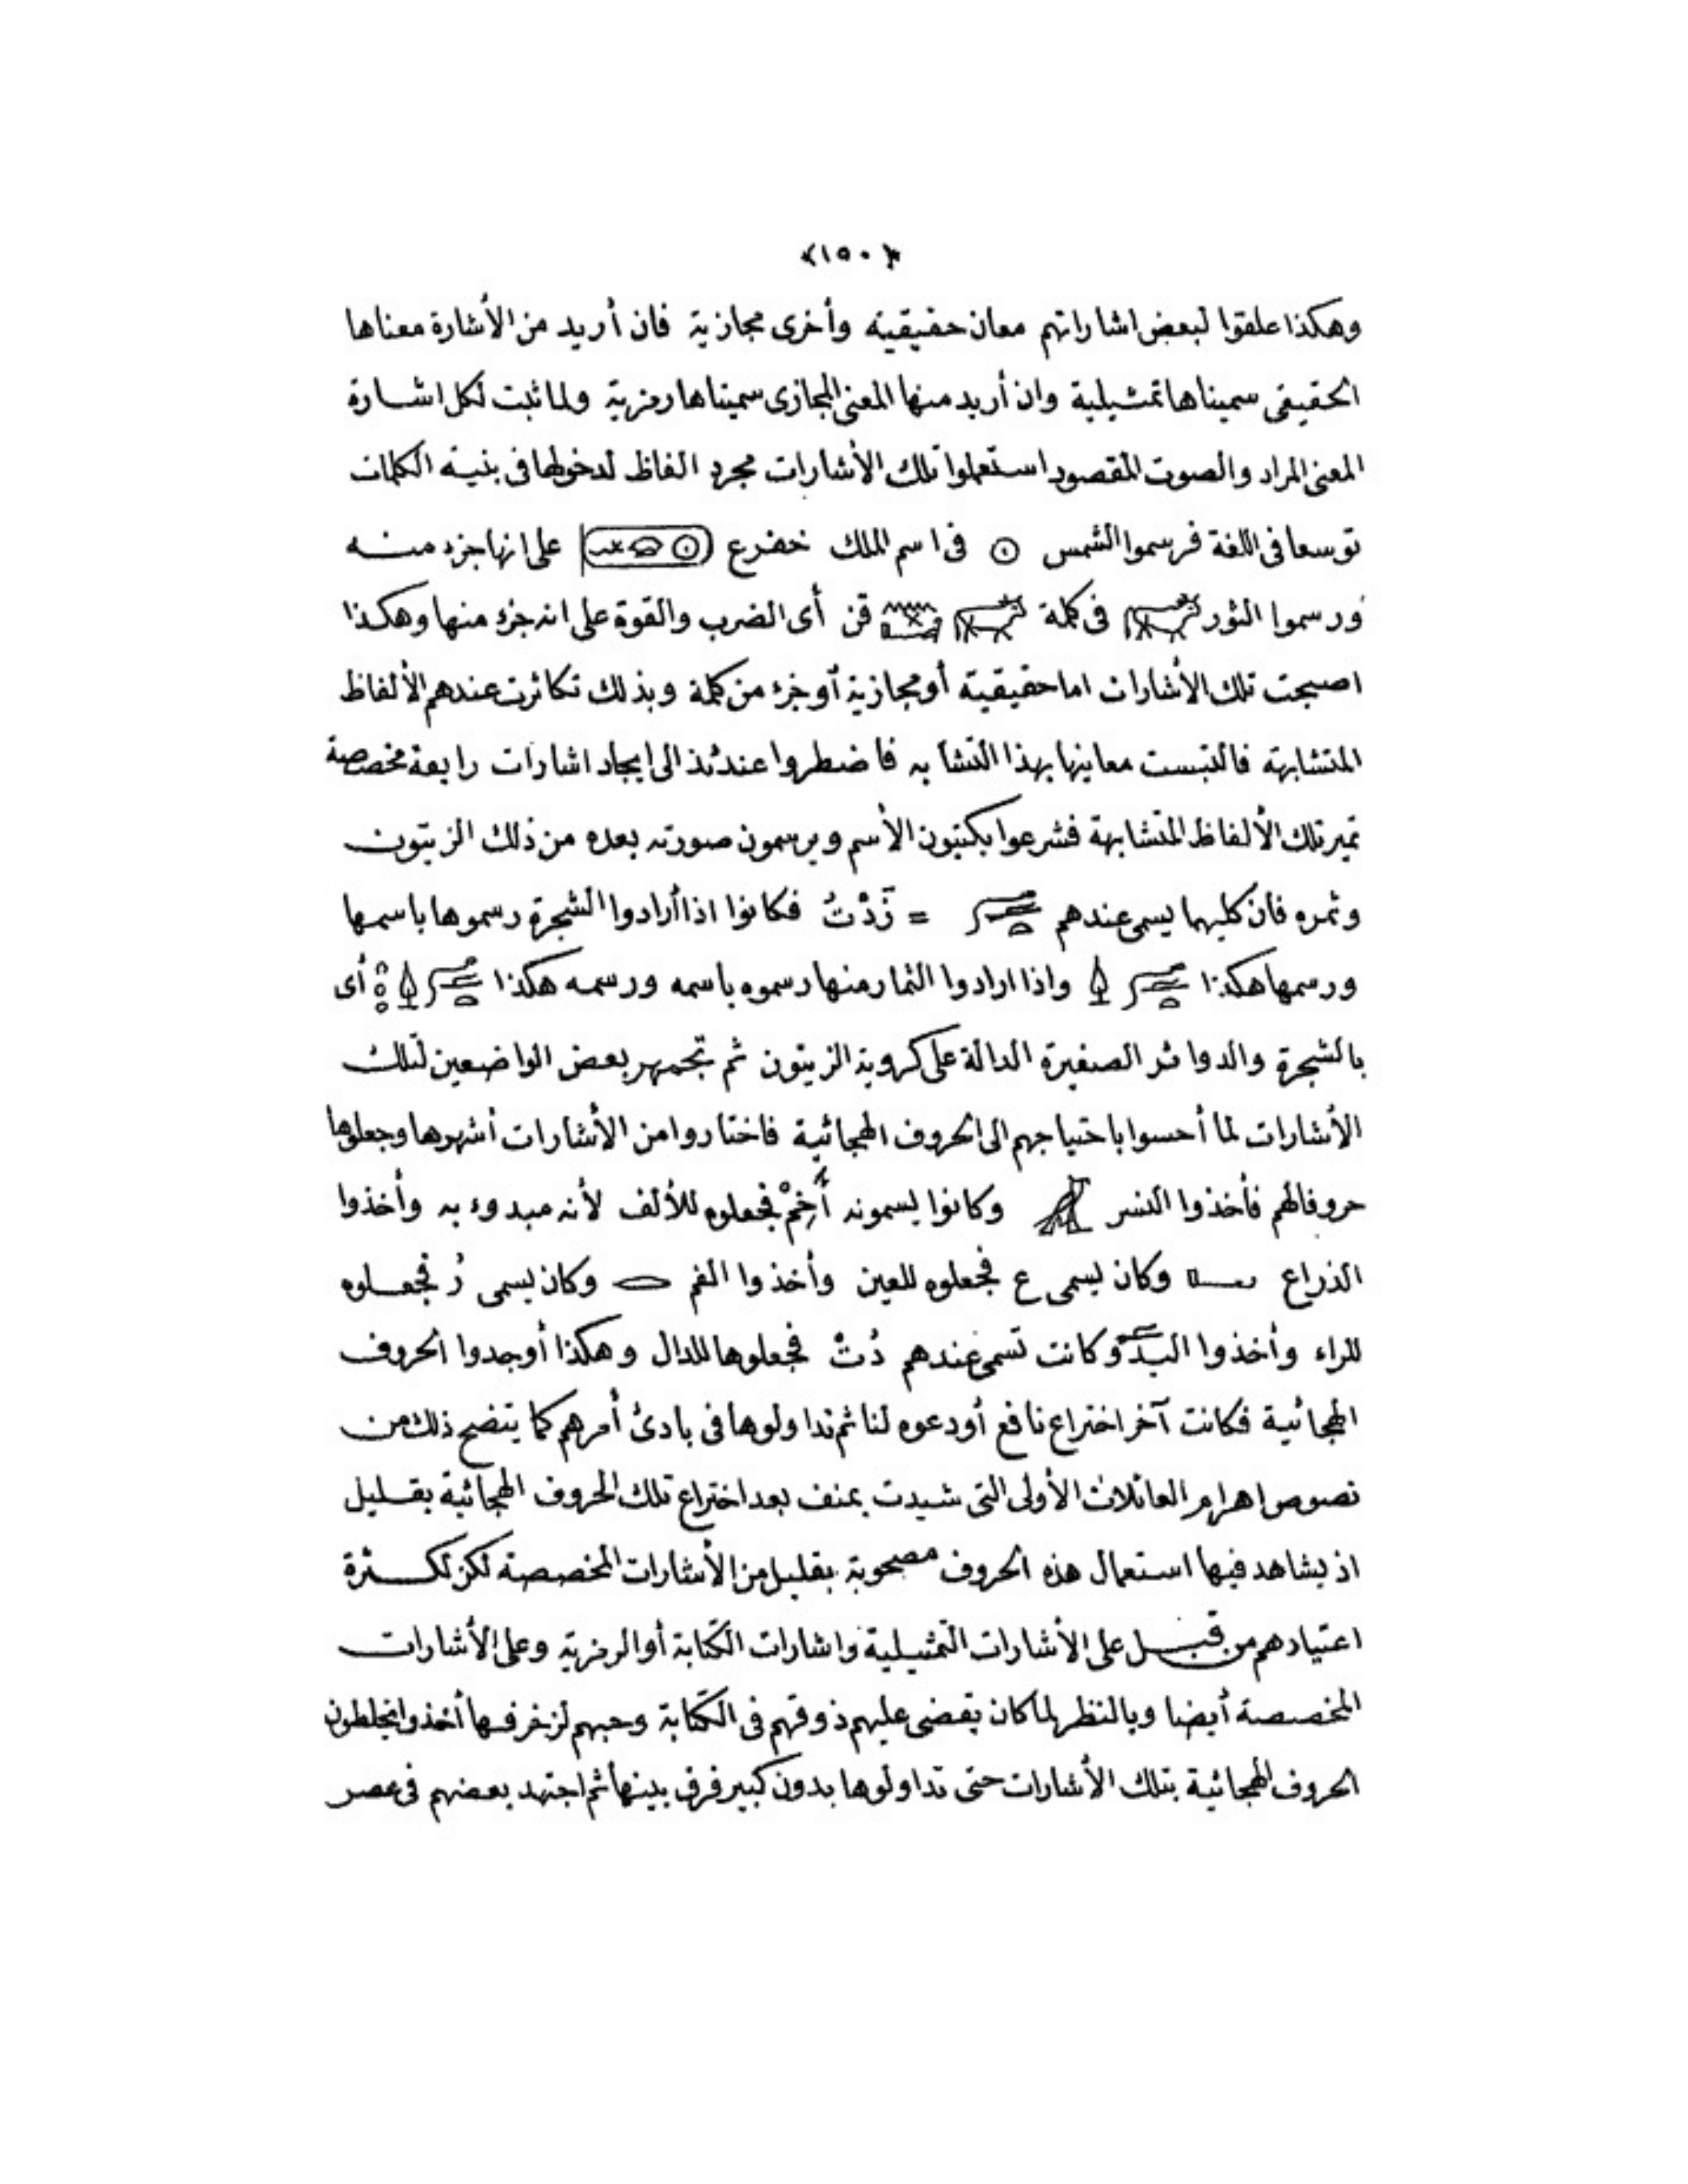 ﴿١٥٠﴾
وهكذا علقوا لبعض اشاراتهم معان حقيقية وأخرى مجازية فان أريد من الأشارة معناها
الحقيقى سميناها تمثيلية وان أريد منها المعنى المجازى سميناها رمزية ولما ثبت لكل اشارة
المعنى المراد والصوت المقصود استعملوا تلك الأشارات مجرد الفاظ لدخولها فى بنية الكلمات
توسعا فى اللغة فرسموا الشمس 𓇳 فى اسم الملك خفرع على انها جزء منه
ورسموا الثور فى كلمة قن أى الضرب والقوة على انه جزء منها وهكذا
اصبحت تلك الأشارات اما حقيقية أو مجازية أو جزء من كلمة وبذلك تكاثرت عندهم الألفاظ
المتشابهة فالتبست معانيها بهذا التشابه فاضطروا عندئذ الى ايجاد اشارات رابعة مخصصة
تميز تلك الألفاظ المتشابهة فشرعوا يكتبون الأسم ويرسمون صورته بعده من ذلك الزيتون
وثمره فان كليهما يسمى عندهم = زَدْتُ فكانوا اذا أرادوا الشجرة رسموها باسمها
ورسمها هكذا واذا ارادوا الثمار منها رسموه باسمه ورسمه هكذا أى
بالشجرة والدوائر الصغيرة الدالة على كروية الزيتون ثم تجمهر بعض الواضعين لتلك
الأشارات لما أحسوا باحتياجهم الى الحروف الهجائية فاختاروا من الأشارات أشهرها وجعلوها
حروفا لهم فأخذوا النسر وكانوا يسمونه أَخِمْ فجعلوه للألف لأنه مبدوء به وأخذوا
الذراع وكان يسمى ع فجعلوه للعين وأخذوا الفم وكان يسمى رُ فجعلوه
للراء وأخذوا اليد وكانت تسمى عندهم دُتْ فجعلوها للدال وهكذا أوجدوا الحروف
الهجائية فكانت آخر اختراع نافع أودعوه لنا ثم تداولوها فى بادئ أمرهم كما يتضح ذلك من
نصوص اهرام العائلات الأولى التى شيدت بمنف بعد اختراع تلك الحروف الهجائية بقليل
اذ يشاهد فيها استعمال هذه الحروف مصحوبة بقليل من الأشارات المخصصة لكن لكثرة
اعتيادهم من قبل على الأشارات التمثيلية واشارات الكتابة أو الرمزية وعلى الأشارات
المخصصة أيضا وبالنظر لما كان يقضى عليهم ذوقهم فى الكتابة وحبهم لزخرفها أخذوا يخلطون
الحروف الهجائية بتلك الأشارات حتى تداولوها بدون كبير فرق بينها ثم اجتهد بعضهم فى عصر